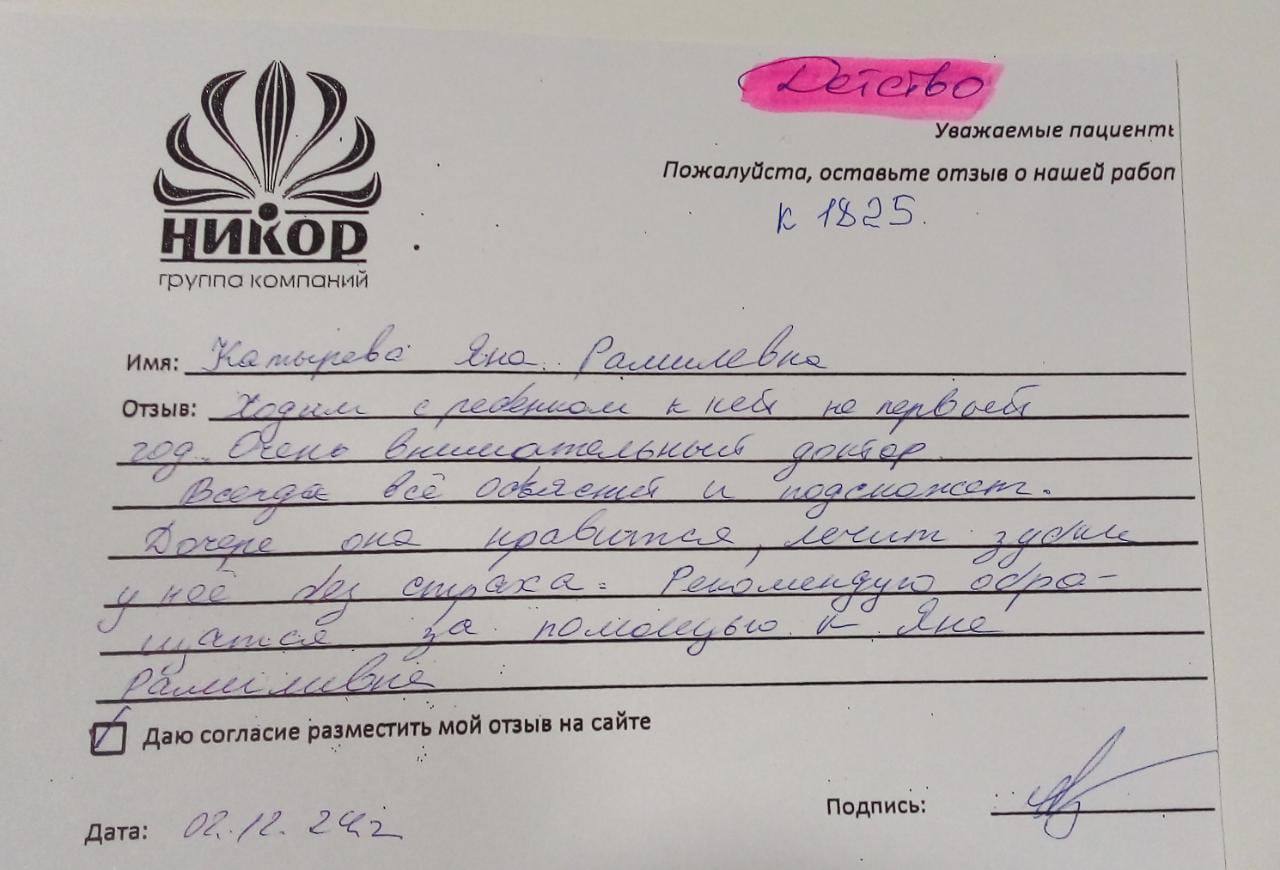 Детство
Уважаемые пациенть
Пожалуйста, оставьте отзыв о нашей работ
к 1825.
НИКОР
группа компаний
Имя: Катырева Яна Рамилевна
Отзыв: Ходим с ребенком к ней не первый
год. Очень внимательный доктор.
Всегда всё объяснит и подскажет.
Дочере она нравится, лечит зубки
у неё без страха. Рекомендую обра-
щатся за помощью к Яне
Рамиливне
Даю согласие разместить мой отзыв на сайте
Подпись:
Дата: 02.12.24г